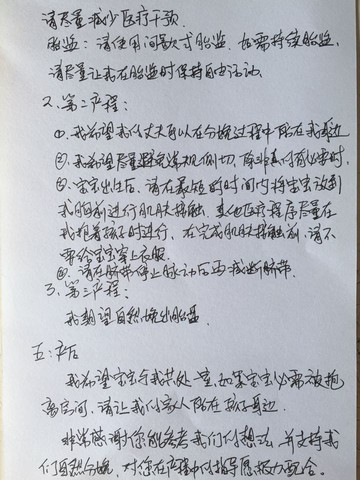 请尽量减少医疗干预.
胎监: 请使用间歇式胎监. 如需持续胎监,
请尽量让我在胎监时保持自由活动.
2. 第二产程:
①. 我希望我的丈夫可以在分娩过程中陪在我身边
②. 我希望尽量避免常规侧切, 除非真的有必要时.
③. 宝宝出生后, 请在最短的时间内将宝宝放到
我胸前进行肌肤接触, 其他医疗程序尽量在
我抱着孩子时进行, 在完成肌肤接触前, 请不
要给宝宝穿上衣服.
④. 请在脐带停止脉动后再减断脐带.
3. 第三产程:
我期望自然娩出胎盘.
五: 产后
我希望宝宝与我共处一室, 如果宝宝必需被抱
离房间, 请让我的家人陪在孩子身边.
非常感谢你能参考我们的想法, 并支持我
们自然分娩, 对您在产程中的指导愿极力配合.